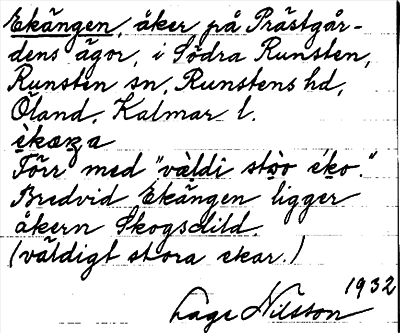 Ekängen, åker på Prästgår-
dens ägor, i Södra Runsten,
Runsten sn, Runstens hd,
Öland, Kalmar l.
Förr med "väldi stöo éko."
Bredvid Ekängen ligger
åkern Skogsdild.
(väldigt stora ekar.)
1932
Lage Nilsson